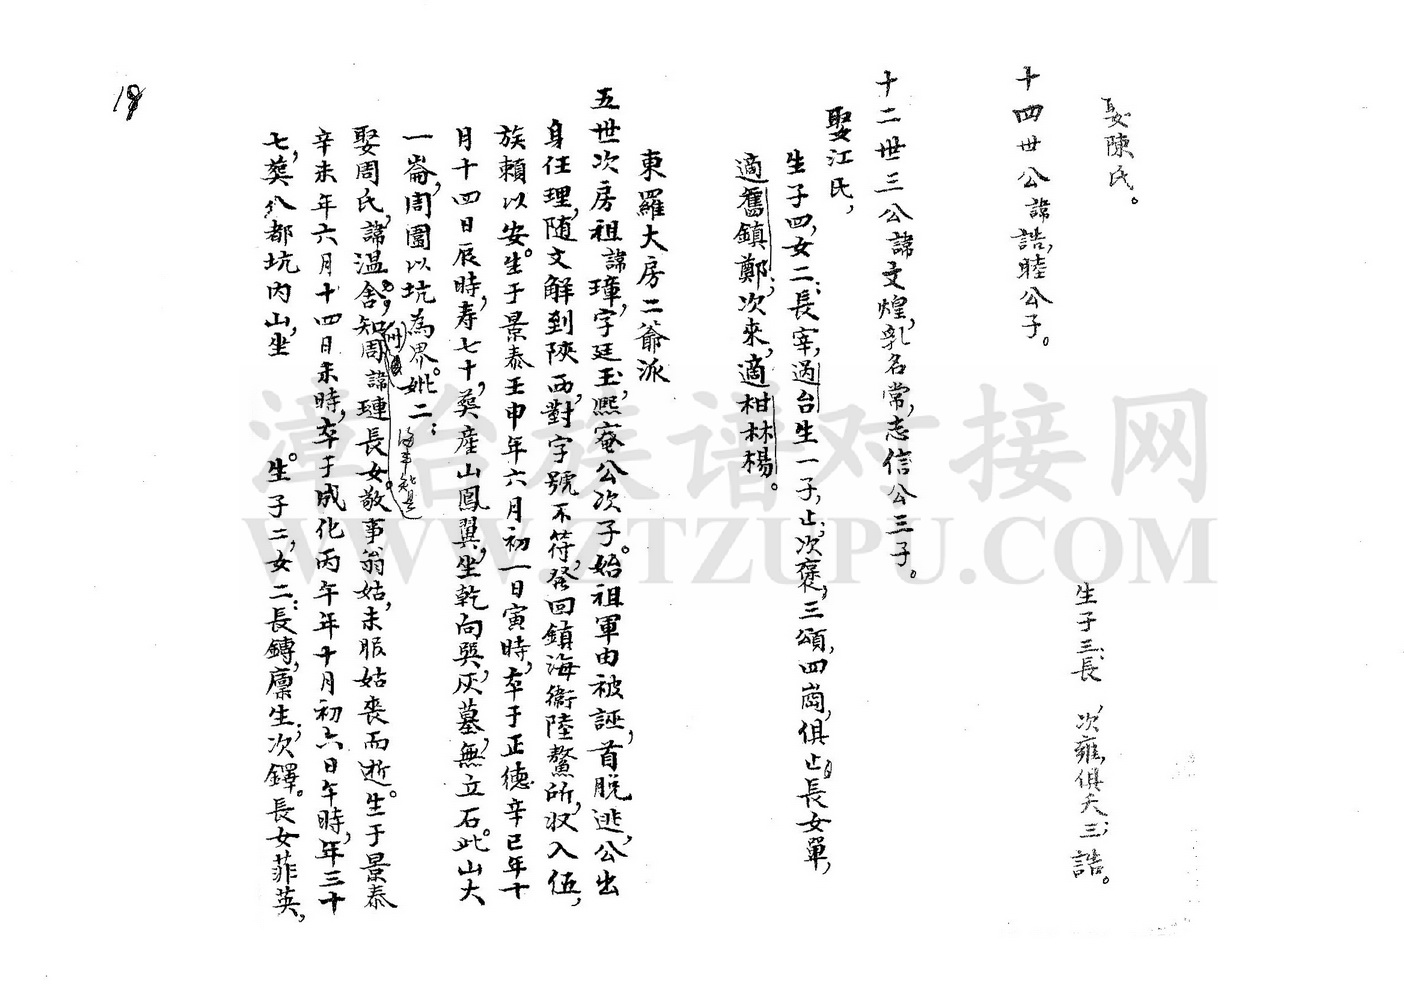 娶陳氏。
生子三：長　次雍，俱夭；三誥。
十四世公諱誥，睦公子。
十二世三公諱文煌，乳名常，志信公三子。
娶江氏，
生子四，女二：長宰，过台生一子，止；次褒，三頌，四崗，俱止。長女單，
適舊鎮鄭；次來，適柑林楊。
東羅大房二爺派
五世次房祖諱璋，字廷玉，熙菴公次子。始祖軍由被誣，首脫逃，公出
身任理，随文解到陝西，對字號不符，發回鎮海衛陸鰲所，収入伍，
族賴以安。生于景泰壬申年六月初一日寅時，卒于正德辛巳年十
月十四日辰時，寿七十，葬産山鳳翼，坐乾向巽，灰墓，無立石。此山大
一崙，周圍以坑為界。妣二：
娶周氏，諱温舍，知州周諱璉長女。敬事翁姑，未服姑喪而逝。生于景泰
辛未年六月十四日未時，卒于成化丙午年十月初六日午時，年三十
七，葬八都坑内山，坐　　生子二，女二：長鏄，廪生；次鐸。長女菲英，
漳台族谱对接网
WWW.ZTZUPU.COM